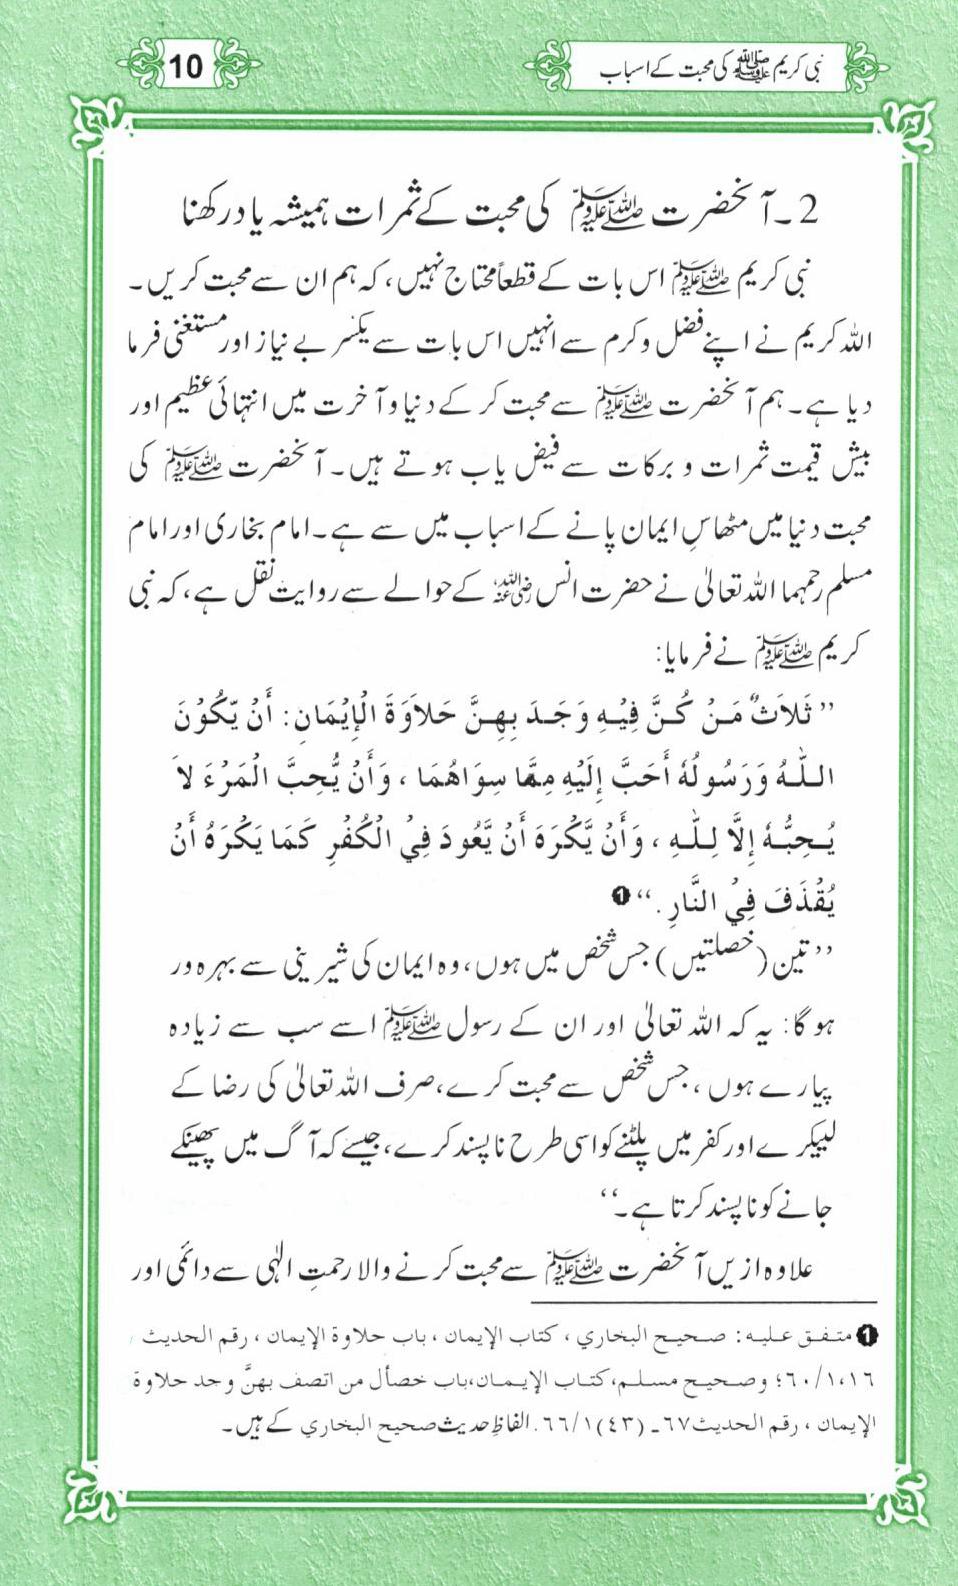 نبی کریم ﷺ کی محبت کے اسباب
10
2۔ آنحضرت ﷺ کی محبت کے ثمرات ہمیشہ یاد رکھنا
نبی کریم ﷺ اس بات کے قطعاً محتاج نہیں، کہ ہم ان سے محبت کریں۔
اللہ کریم نے اپنے فضل و کرم سے انہیں اس بات سے یکسر بے نیاز اور مستغنی فرما
دیا ہے۔ ہم آنحضرت ﷺ سے محبت کر کے دنیا و آخرت میں انتہائی عظیم اور
بیش قیمت ثمرات و برکات سے فیض یاب ہوتے ہیں۔ آنحضرت ﷺ کی
محبت دنیا میں مٹھاسِ ایمان پانے کے اسباب میں سے ہے۔ امام بخاری اور امام
مسلم رحمہما اللہ تعالیٰ نے حضرت انس رضی اللہ عنہ کے حوالے سے روایت نقل ہے، کہ نبی
کریم ﷺ نے فرمایا:
”ثَلاَثٌ مَنْ كُنَّ فِيْهِ وَجَدَ بِهِنَّ حَلاَوَةَ الْإِيْمَانِ: أَنْ يَّكُوْنَ
اللّٰهُ وَرَسُولُهُ أَحَبَّ إِلَيْهِ مِمَّا سِوَاهُمَا ، وَأَنْ يُّحِبَّ الْمَرْءَ لاَ
يُحِبُّهُ إِلَّا لِلّٰهِ ، وَأَنْ يَّكْرَهَ أَنْ يَّعُودَ فِيْ الْكُفْرِ كَمَا يَكْرَهُ أَنْ
يُقْذَفَ فِيْ النَّارِ .“ ❶
”تین (خصلتیں) جس شخص میں ہوں، وہ ایمان کی شیرینی سے بہرہ ور
ہوگا: یہ کہ اللہ تعالیٰ اور ان کے رسول ﷺ اسے سب سے زیادہ
پیارے ہوں ، جس شخص سے محبت کرے، صرف اللہ تعالیٰ کی رضا کے
لیے کرے اور کفر میں پلٹنے کو اسی طرح ناپسند کرے، جیسے کہ آگ میں پھینکے
جانے کو ناپسند کرتا ہے۔“
علاوہ ازیں آنحضرت ﷺ سے محبت کرنے والا رحمتِ الٰہی سے دائمی اور
❶ متفق عليه: صحيح البخاري ، كتاب الإيمان ، باب حلاوة الإيمان ، رقم الحديث
١٦،١/٦٠؛ وصحيح مسلم، كتاب الإيمان،باب خصأل من اتصف بهنَّ وجد حلاوة
الإيمان ، رقم الحديث٦٧ـ (٤٣)١/٦٦. الفاظِ حدیث صحیح البخاري کے ہیں۔